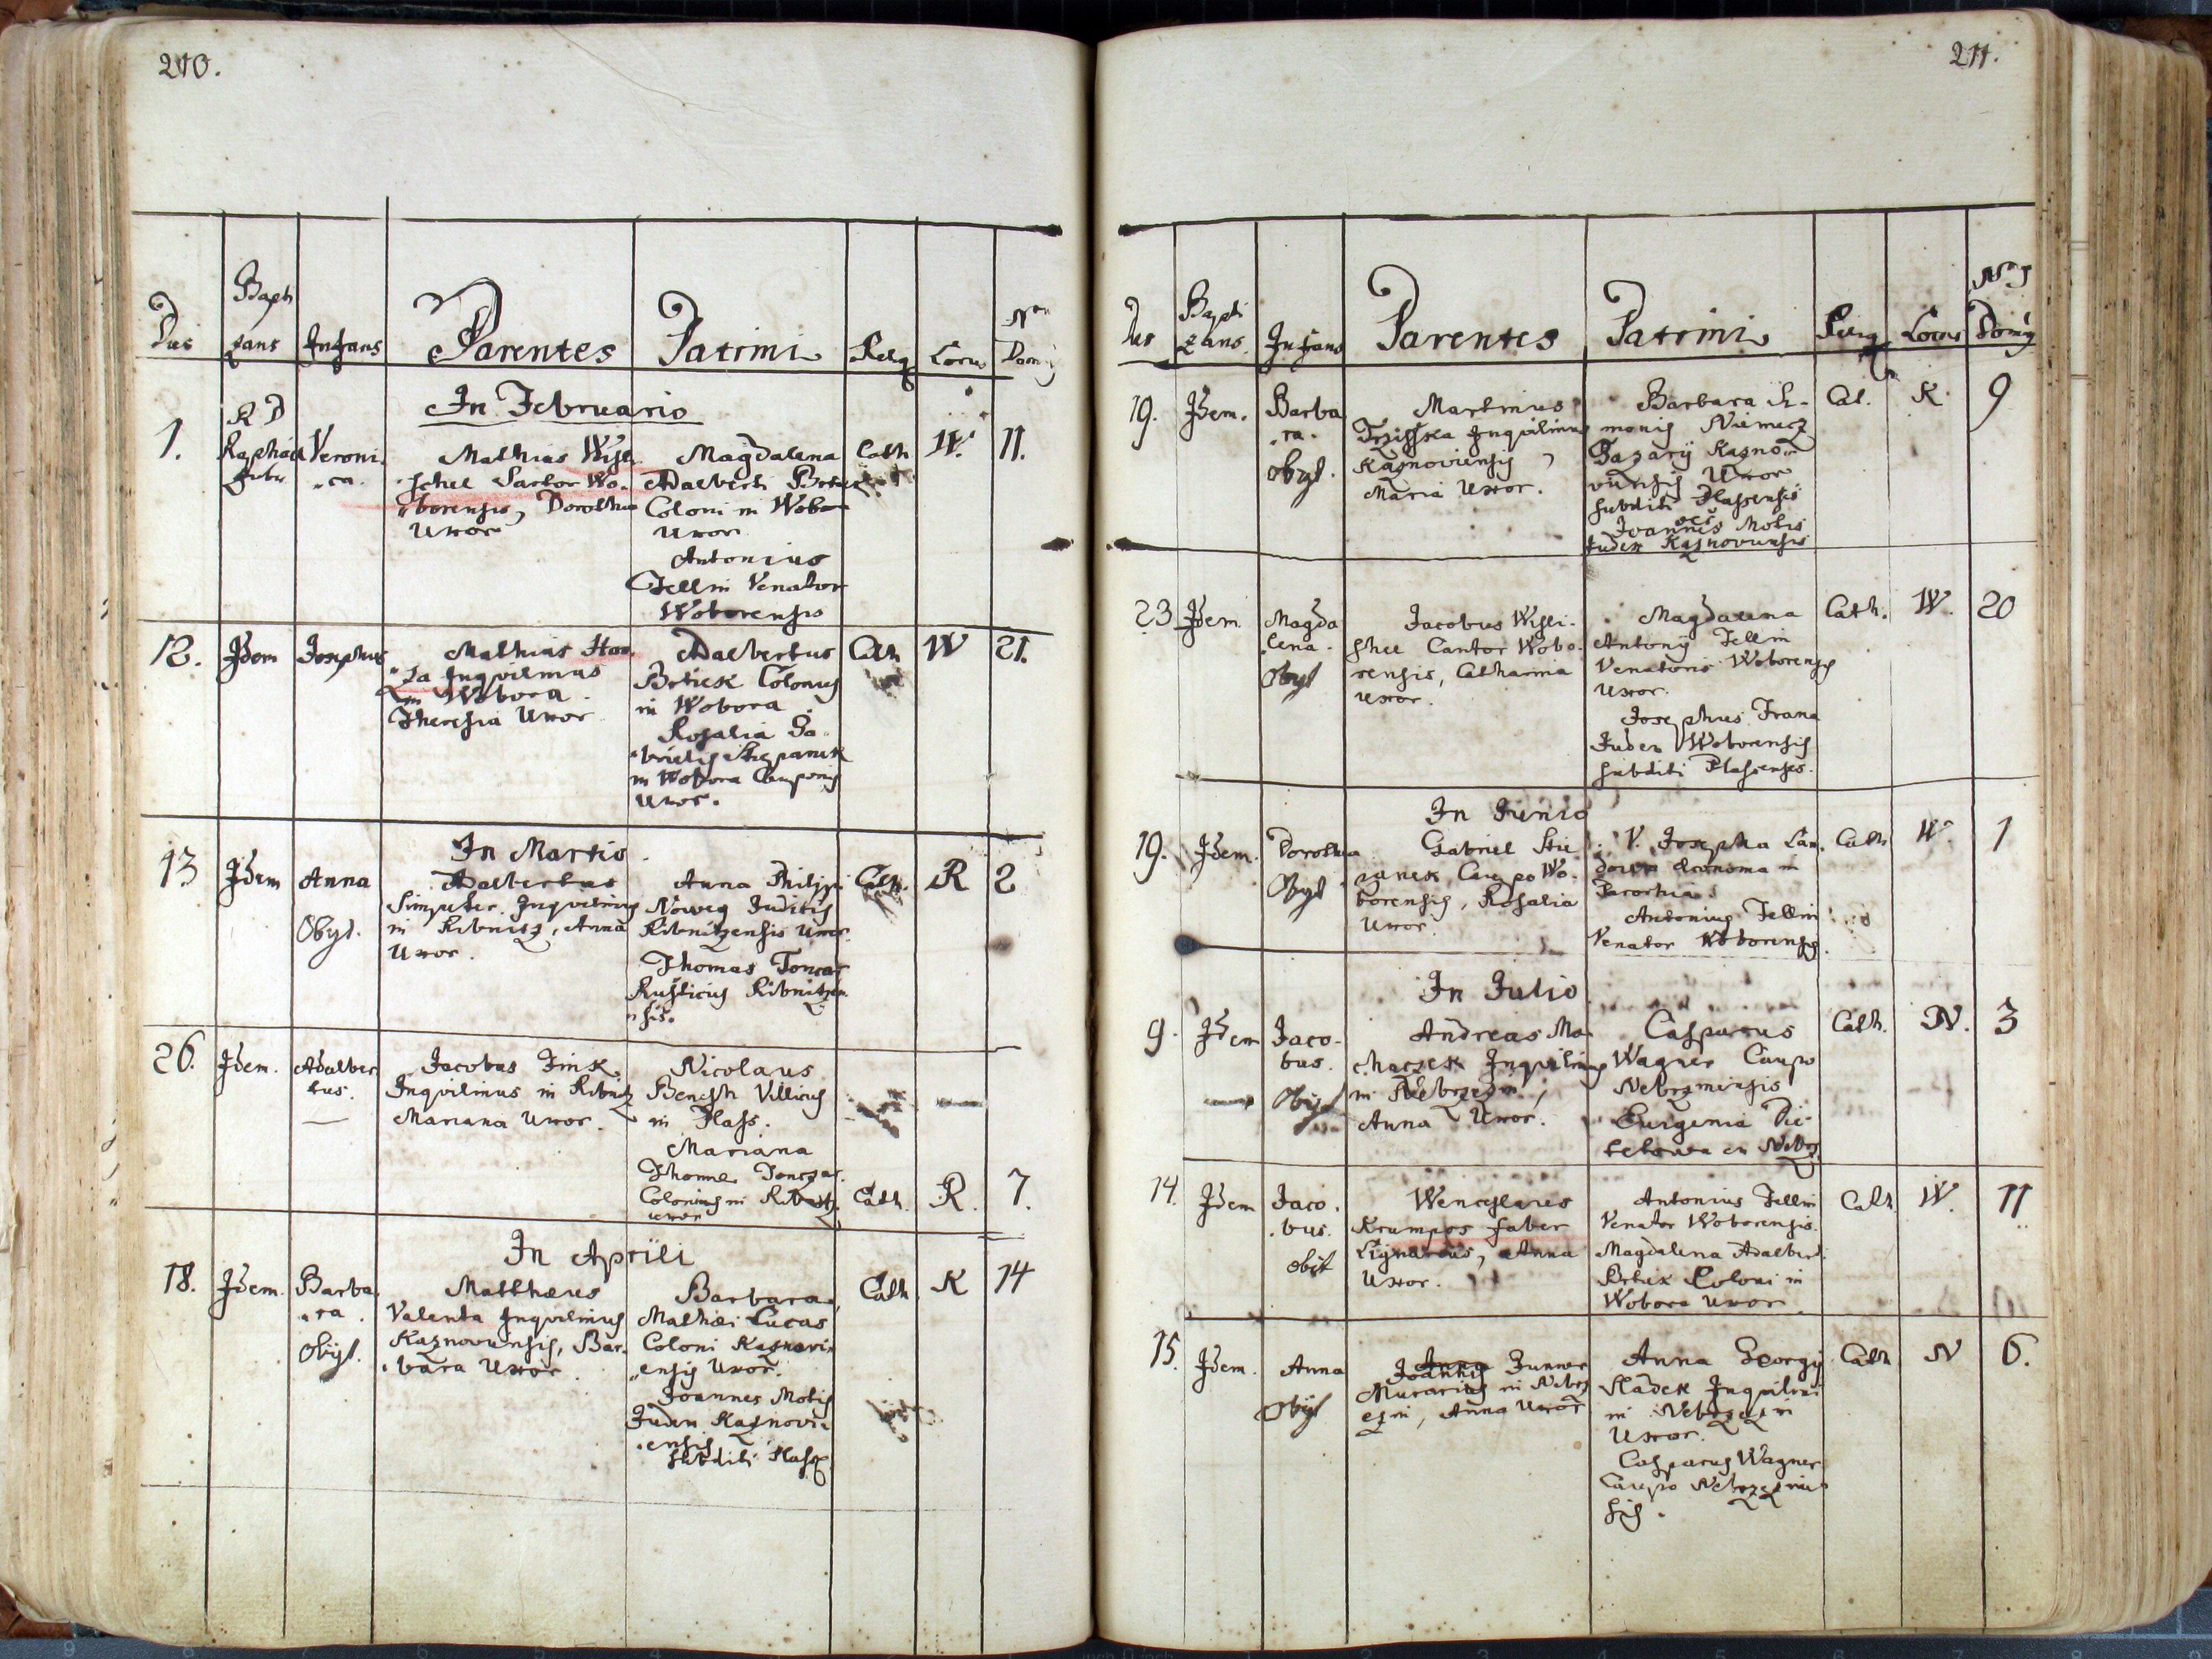 210.
Dies
Bapti
zans
Infans
Parentes
Patrini
Relig
Locus
Nrus
Domus
In Februario
1.
R D
Raphael
Veroni
ca.
Mathias Wisli
schel Sartor Wo
borensis, Dorothea
Uxor
Magdalena
Adalberti
Coloni in Wobora
Uxor
Antonius
Fellin Venator
Woborensis
Cath
W.
11.
12.
Idem
Josephus
Mathias
Inqvilinus
in Wobora
Theresia Uxor
Adalbertus
Colonus
in Wobora
Rosalia Ga
brielis Stiepanek
in Wobora Cauponis
Uxor.
Cath
W
21.
In Martio
13
Idem
Anna
Obyt.
Adalbertus
Inqvilinus
in Ribnitz, Anna
Uxor.
Anna Philippi
Nowey Judicis
Ribnitzensis Uxor
Thomas
Rusticus Ribnitzen
sis.
Cath.
R
2
26.
Idem.
Adalber
tus.
Jacobus Fink
Inqvilinus in Ribnitz
Mariana Uxor.
Nicolaus
Benesch Villicus
in Plass.
Mariana
Thomae
in Ribnitz
uxor
Cath.
R.
7.
In Aprili
18.
Idem.
Barba
ra.
Obyt.
Matthaeus
Valenta Inqvilinus
Kaznoviensis, Bar
bara Uxor.
Barbara
Mathaei Lucas
Coloni Kaznovi
ensis Uxor.
Joannes Motis
Judex Kaznovi
ensis
subditi Plass
Cath
K
14
211.
Dies
Bapti
zans.
Infans
Parentes
Patrini
Relig
Locus
Nrus
Domus
19.
Idem.
Barba
ra.
Obyt.
Martinus
Inqvilinus
Kaznoviensis,
Maria Uxor.
Barbara Si
monis Niemecz
Kazno
viensis Uxor
subditi Plassensis
Joannes Motis
Judex Kaznoviensis
Cat.
K
9
23
Idem.
Magda
lena.
Obyt
Jacobus Wisli
schel Cantor Wobo
rensis, Catharina
uxor.
Magdalena
Antonij Fellin
Venatoris Woborensis
uxor.
Josephus Frana
Judex Woborensis
subditi Plassenses.
Cath.
W.
20
In Junio
19.
Idem.
Dorothea
Obyt
Gabriel Stie
panek, Caupo Wo
borensis, Rosalia
Uxor.
V. Josepha
oeconoma in
Parochia
Antonius Fellin
Venator Woborensis.
Cath
W.
1
In Julio
9.
Idem
Jaco
bus.
Obyt
Andreas Ma
chaczek Inqvilinus
in Nebrzezin,
Anna Uxor.
Casparus
Wagner Caupo
Eurgenia
Cath.
N.
3
14.
Idem
Jaco
bus.
obiit
Wenceslaus
Krumpos faber
Lignarius, Anna
Uxor.
Antonius Fellin
Venator Woborensis.
Magdalena Adalberti
Coloni in
Wobora uxor
Cath
W.
11
15.
Idem.
Anna
Obyt
Joannes
Murarius in Nebrz
ezin, Anna Uxor
Anna Georgij
Sladek Inqvilini
in Nebrzezin
Uxor.
Casparus Wagner
Caupo Nebrzezinien
sis.
Cath
N
6.